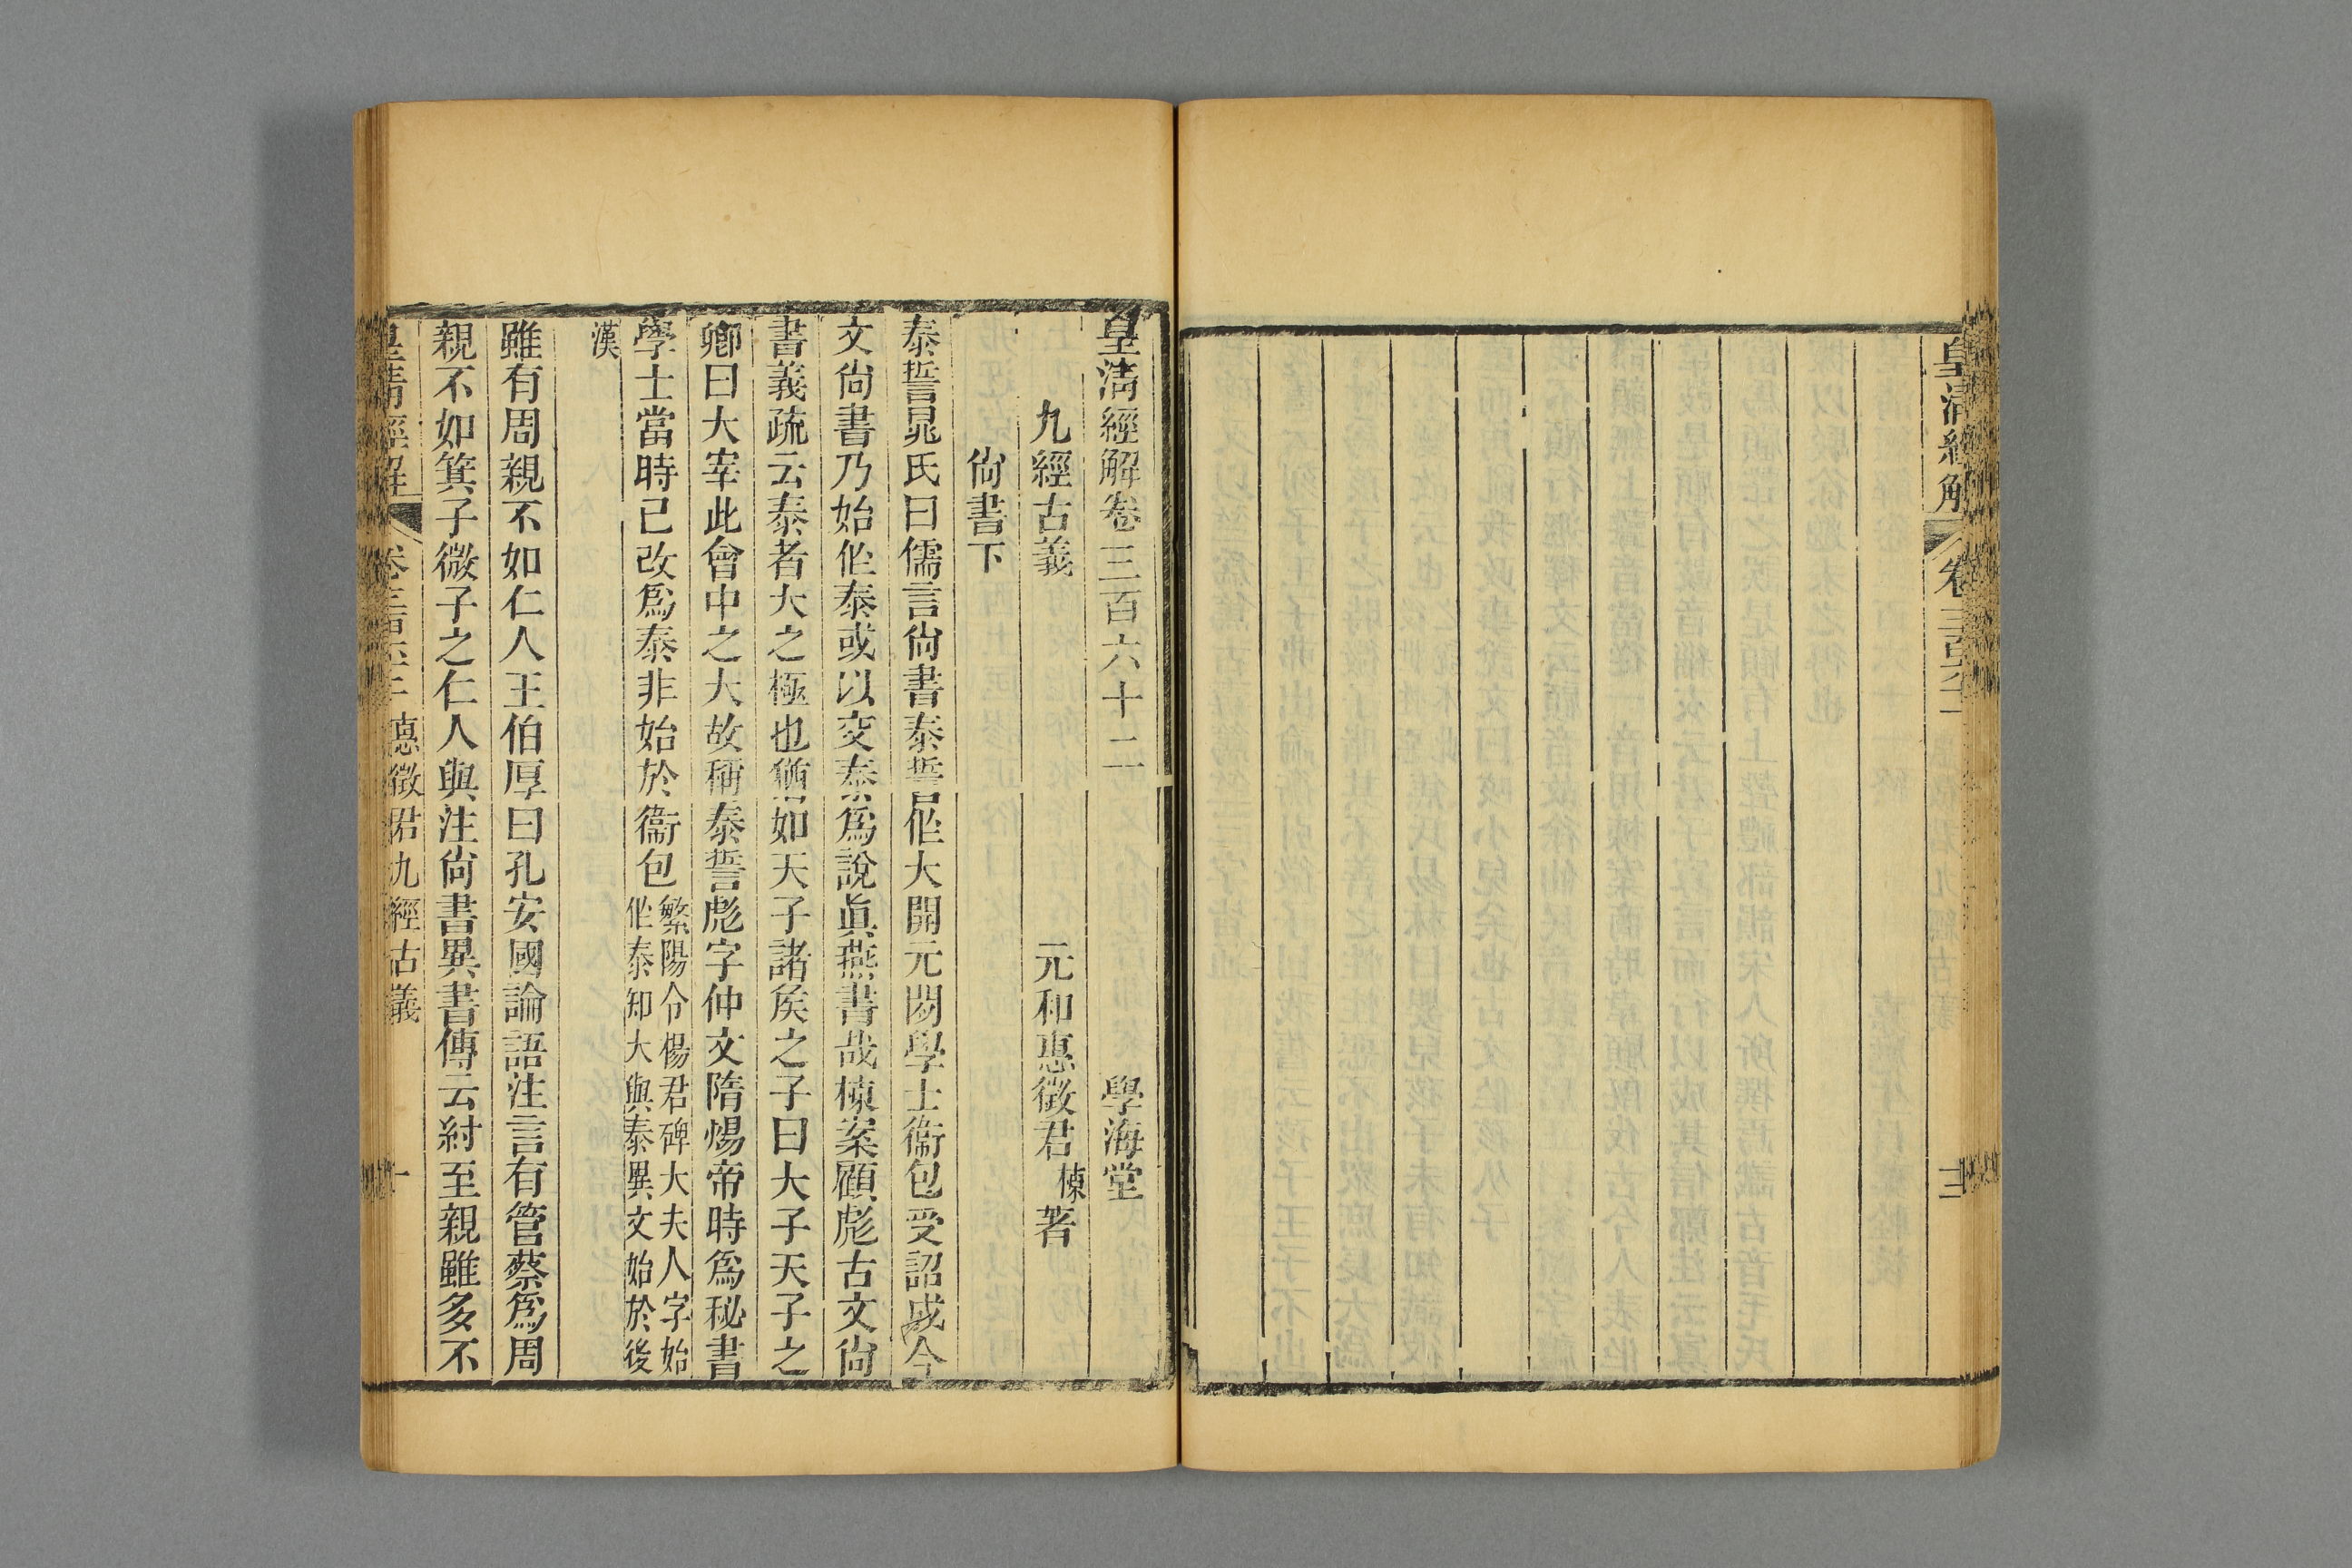 皇清經解
卷三百六十一
皇清經解卷三百六十二
學海堂
九經古義
元和惠徵君棟著
尙書下
泰誓晁氏曰儒言尙書泰誓作大開元閒學士衞包受詔成今
文尙書乃始作泰或以交泰爲說眞燕書哉棟案顧彪古文尙
書義疏云泰者大之極也猶如天子諸矦之子曰大子天子之
卿曰大宰此會中之大故稱泰誓彪字仲文隋煬帝時爲秘書
學士當時已改爲泰非始於衞包
繁陽令楊君碑大夫人字始
作泰知大與泰異文始於後
漢
雖有周親不如仁人王伯厚曰孔安國論語注言有管蔡爲周
親不如箕子微子之仁人與注尙書異書傳云紂至親雖多不
皇清經解
惠徵君九經古義
十